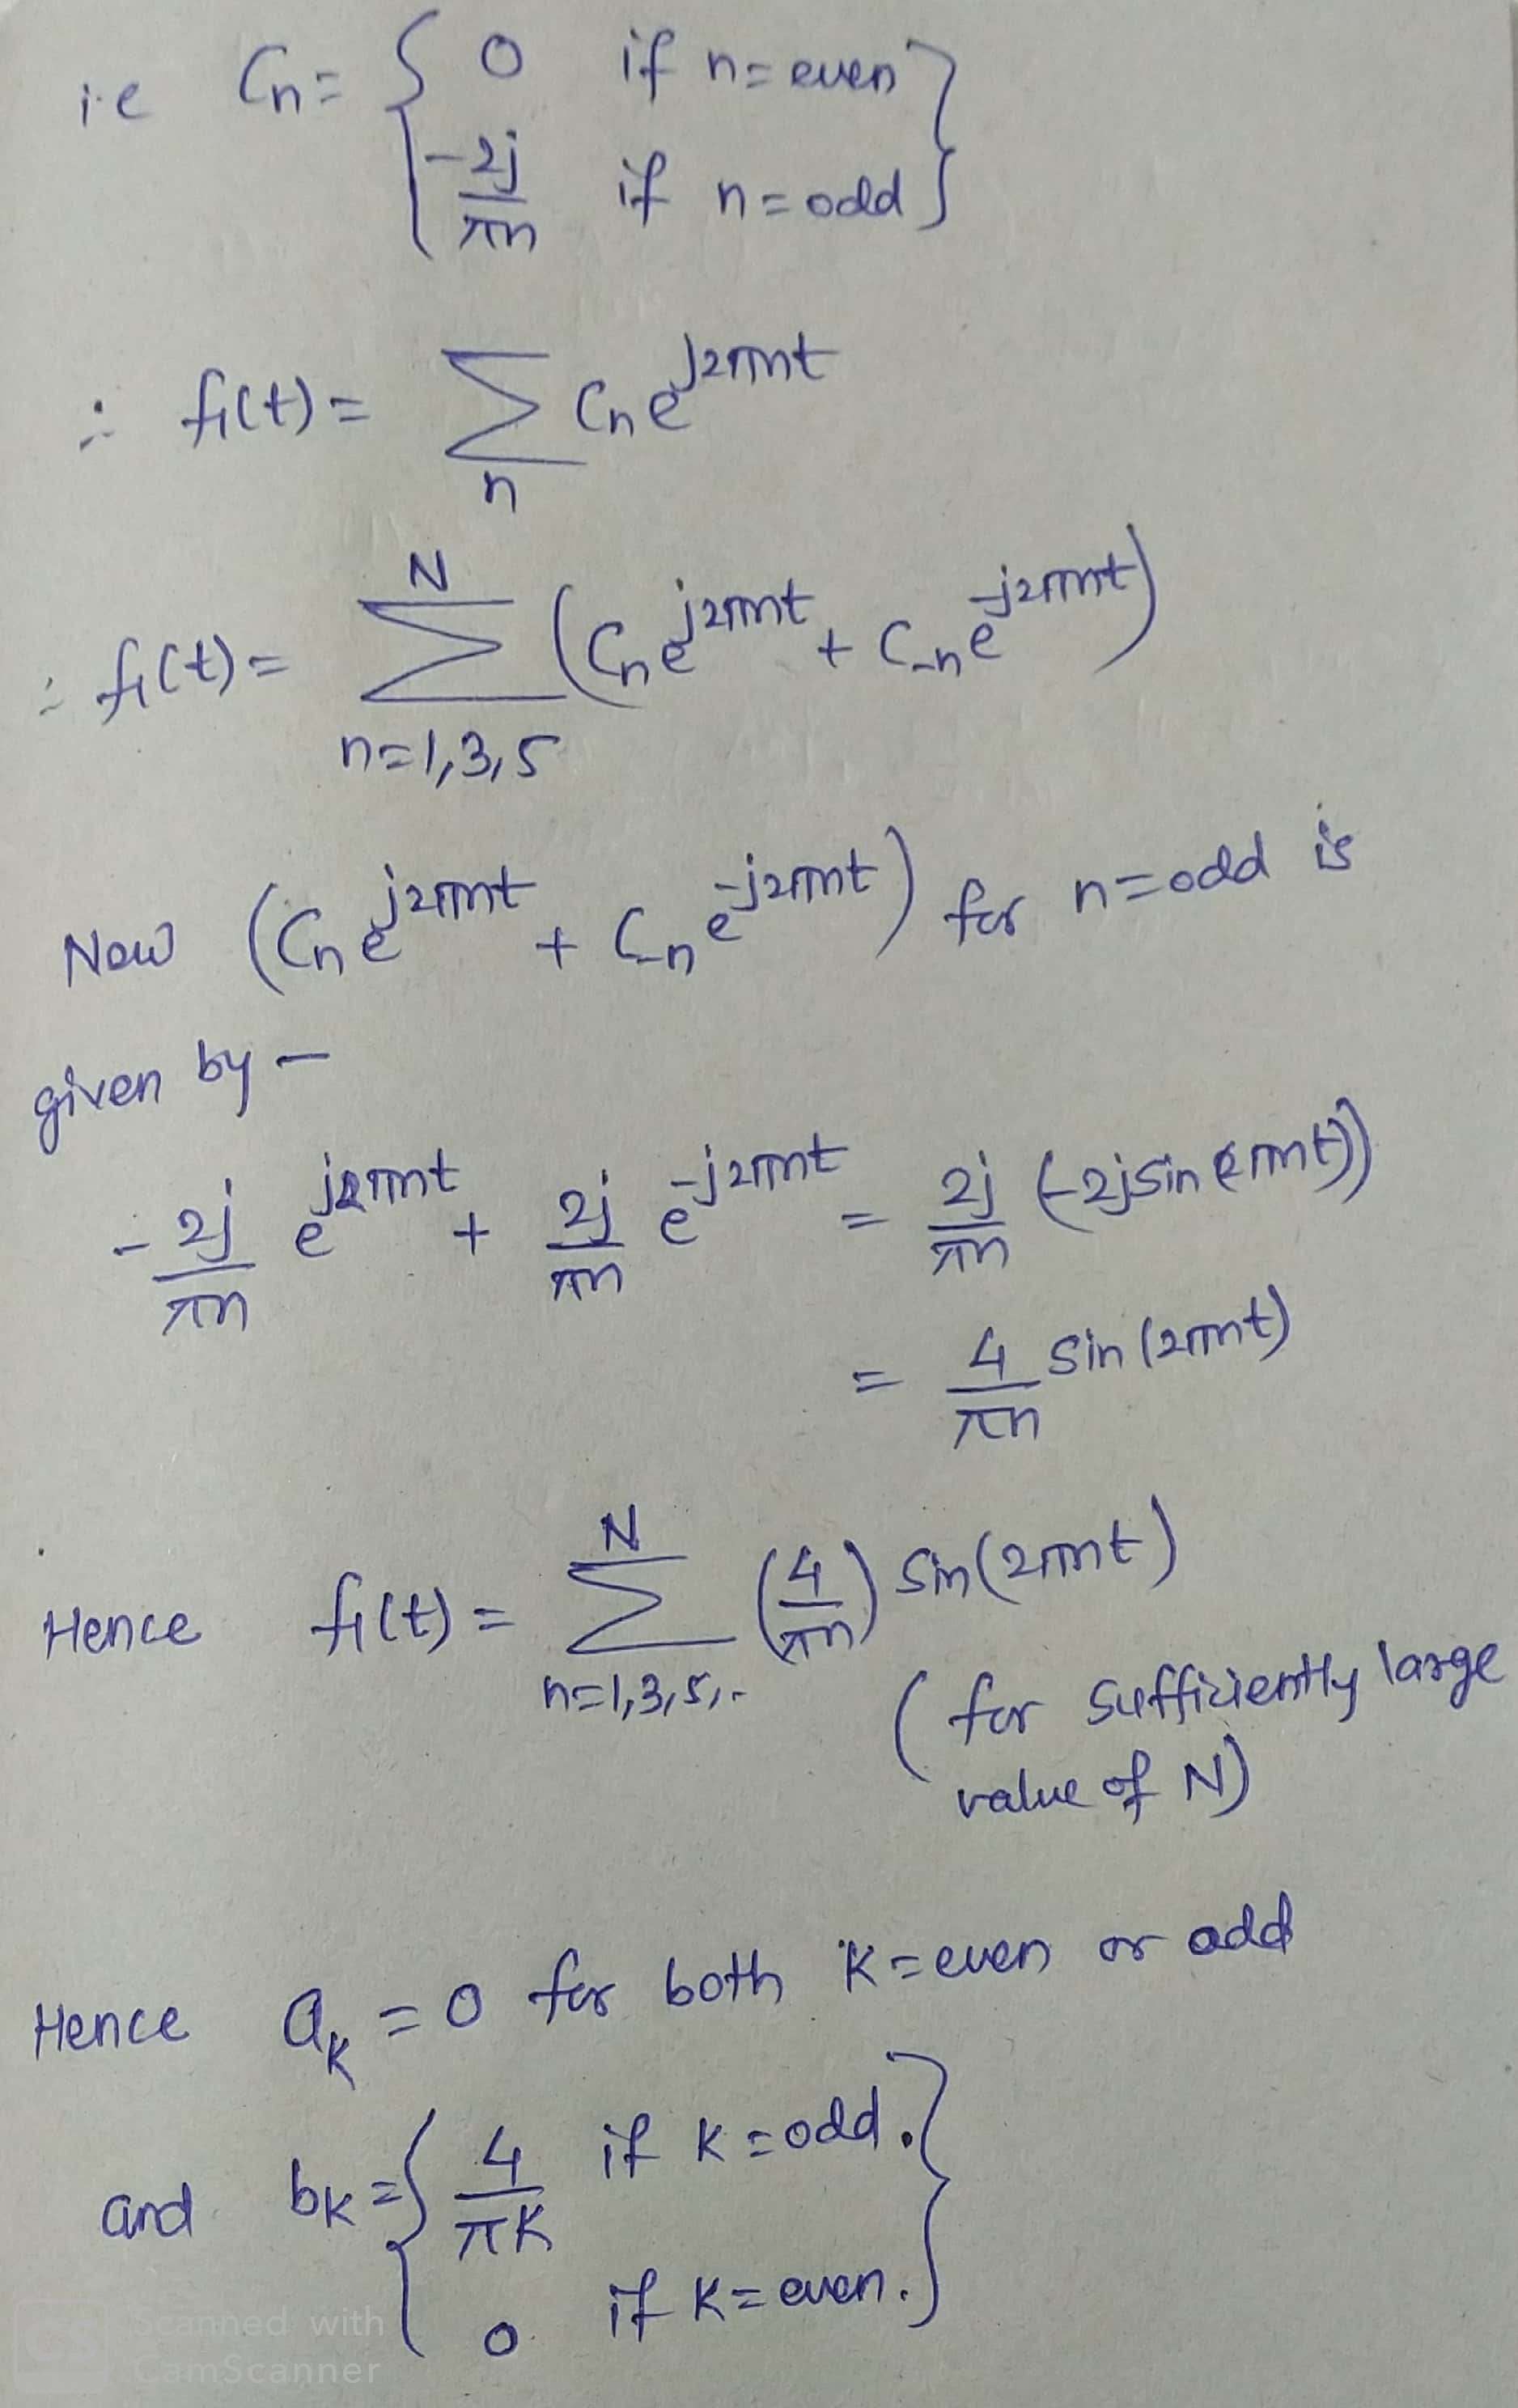 i.e Cn = { 0 if n = even
-2j/πn if n = odd }
∴ f1(t) = Σ_n Cn e^{j2πnt}
∴ f1(t) = Σ_{n=1,3,5}^{N} (Cn e^{j2πnt} + C-n e^{-j2πnt})
Now (Cn e^{j2πnt} + C-n e^{-j2πnt}) for n = odd is
given by –
-2j/πn e^{j2πnt} + 2j/πn e^{-j2πnt} = 2j/πn (-2j sin(2πnt))
= 4/πn sin(2πnt)
Hence f1(t) = Σ_{n=1,3,5,..}^{N} (4/πn) sin(2πnt)
(for sufficiently large
value of N)
Hence aK = 0 for both K = even or odd
and bK = { 4/πK if K = odd.
0 if K = even. }
CS Scanned with
CamScanner